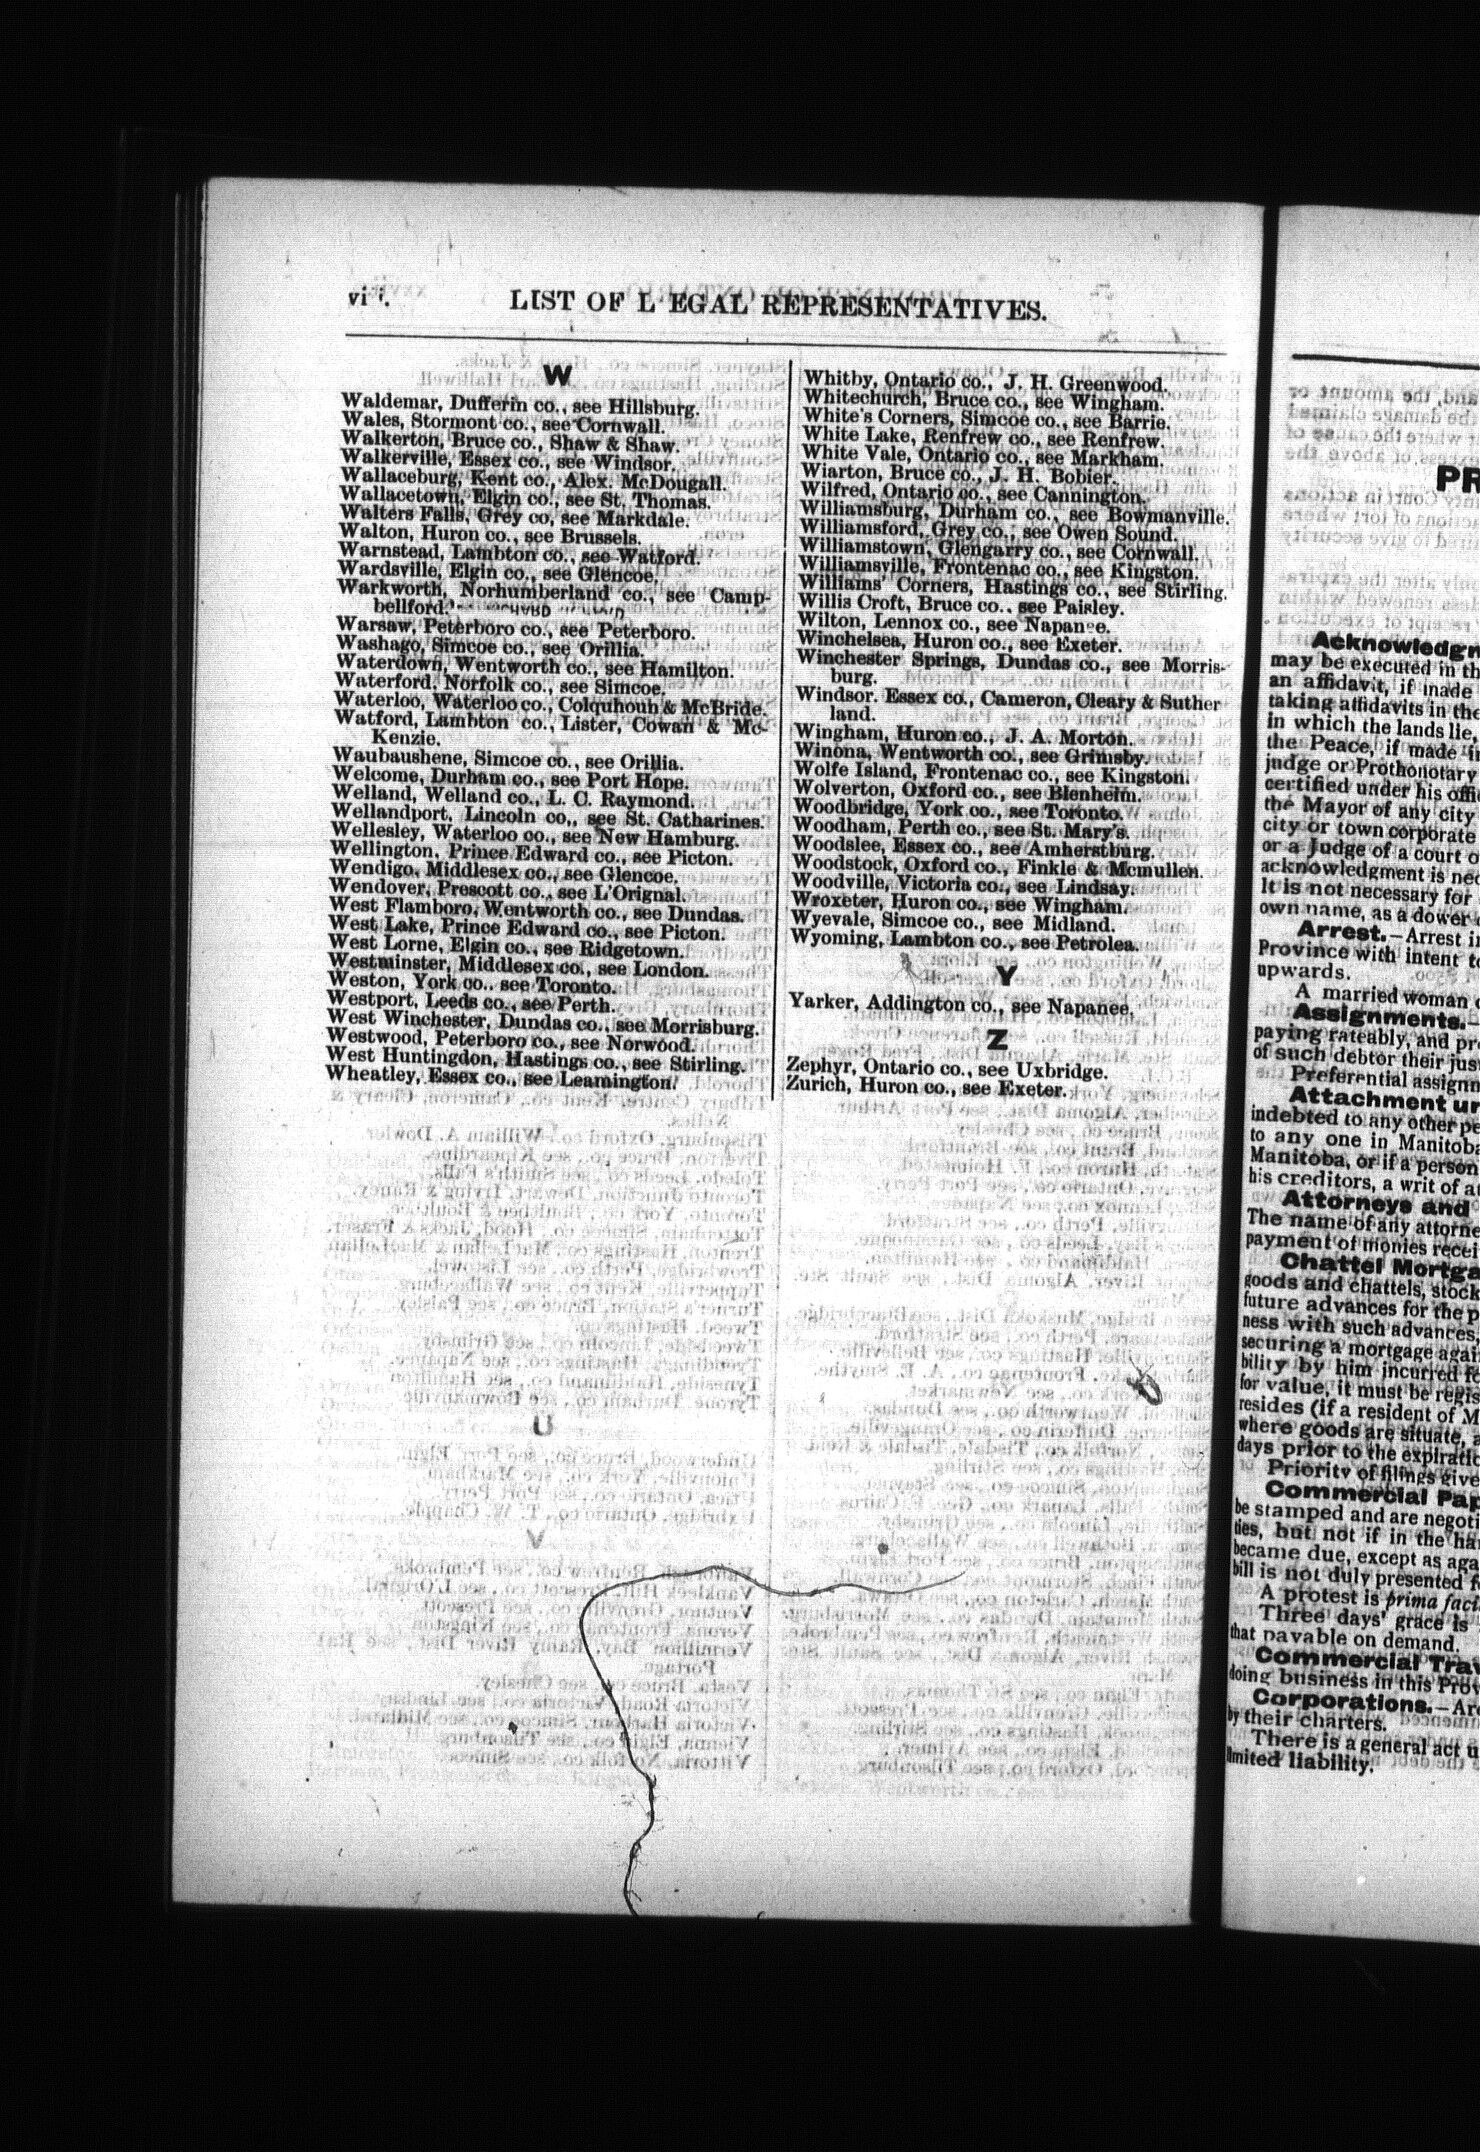 LIST OF L EGAL REPRESENTATIVES.
W
Waldemar, Dufferin co., see Hillsburg.
Wales, Stormont co., see Cornwall.
Walkerton, Bruce co., Shaw & Shaw.
Walkerville, Essex co., see Windsor.
Wallaceburg, Kent co., Alex. McDougall.
Wallacetown, Elgin co., see St. Thomas.
Walters Falls, Grey co, see Markdale.
Walton, Huron co., see Brussels.
Warnstead, Lambton co., see Watford.
Wardsville, Elgin co., see Glencoe.
Warkworth, Norhumberland co., see Camp-
bellford.
Warsaw, Peterboro co., see Peterboro.
Washago, Simcoe co., see Orillia.
Waterdown, Wentworth co., see Hamilton.
Waterford, Norfolk co., see Simcoe.
Waterloo, Waterloo co., Colquhoun & McBride.
Watford, Lambton co., Lister, Cowan & Mc-
Kenzie.
Waubaushene, Simcoe co., see Orillia.
Welcome, Durham co., see Port Hope.
Welland, Welland co., L. C. Raymond.
Wellandport, Lincoln co., see St. Catharines.
Wellesley, Waterloo co., see New Hamburg.
Wellington, Prince Edward co., see Picton.
Wendigo, Middlesex co., see Glencoe.
Wendover, Prescott co., see L'Orignal.
West Flamboro, Wentworth co., see Dundas.
West Lake, Prince Edward co., see Picton.
West Lorne, Elgin co., see Ridgetown.
Westminster, Middlesex co., see London.
Weston, York co., see Toronto.
Westport, Leeds co., see Perth.
West Winchester, Dundas co., see Morrisburg.
Westwood, Peterboro co., see Norwood.
West Huntingdon, Hastings co., see Stirling.
Wheatley, Essex co., see Leamington.
Whitby, Ontario co., J. H. Greenwood.
Whitechurch, Bruce co., see Wingham.
White's Corners, Simcoe co., see Barrie.
White Lake, Renfrew co., see Renfrew.
White Vale, Ontario co., see Markham.
Wiarton, Bruce co., J. H. Bobier.
Wilfred, Ontario co., see Cannington.
Williamsburg, Durham co., see Bowmanville.
Williamsford, Grey co., see Owen Sound.
Williamstown, Glengarry co., see Cornwall.
Williamsville, Frontenac co., see Kingston.
Williams' Corners, Hastings co., see Stirling.
Willis Croft, Bruce co., see Paisley.
Wilton, Lennox co., see Napanee.
Winchelsea, Huron co., see Exeter.
Winchester Springs, Dundas co., see Morris-
burg.
Windsor. Essex co., Cameron, Cleary & Suther
land.
Wingham, Huron co., J. A. Morton.
Winona, Wentworth co., see Grimsby.
Wolfe Island, Frontenac co., see Kingston.
Wolverton, Oxford co., see Blenheim.
Woodbridge, York co., see Toronto.
Woodham, Perth co., see St. Mary's.
Woodslee, Essex co., see Amherstburg.
Woodstock, Oxford co., Finkle & Mcmullen.
Woodville, Victoria co., see Lindsay.
Wroxeter, Huron co., see Wingham.
Wyevale, Simcoe co., see Midland.
Wyoming, Lambton co., see Petrolea.
Y
Yarker, Addington co., see Napanee.
Z
Zephyr, Ontario co., see Uxbridge.
Zurich, Huron co., see Exeter.
PR
Acknowledgm
may be executed in th
an affidavit, if made
taking affidavits in the
in which the lands lie,
the Peace, if made in
judge or Prothonotary
certified under his offi
the Mayor of any city
city or town corporate
or a Judge of a court o
acknowledgment is nec
It is not necessary for
own name, as a dower
Arrest.—Arrest in
Province with intent to
upwards.
A married woman
Assignments.
paying rateably, and pr
of such debtor their jus
Preferential assignm
Attachment un
indebted to any other pe
to any one in Manitoba
Manitoba, or if a person
his creditors, a writ of at
Attorneys and
The name of any attorne
payment of monies recei
Chattel Mortga
goods and chattels, stock
future advances for the p
ness with such advances,
securing a mortgage agai
bility by him incurred fo
for value, it must be regis
resides (if a resident of M
where goods are situate, a
days prior to the expiratio
Priority of filings give
Commercial Pap
be stamped and are negoti
ties, but not if in the ha
became due, except as aga
bill is not duly presented f
A protest is prima faci
Three days' grace is
that payable on demand.
Commercial Trav
doing business in this Prov
Corporations.—Are
by their charters.
There is a general act u
limited liability.